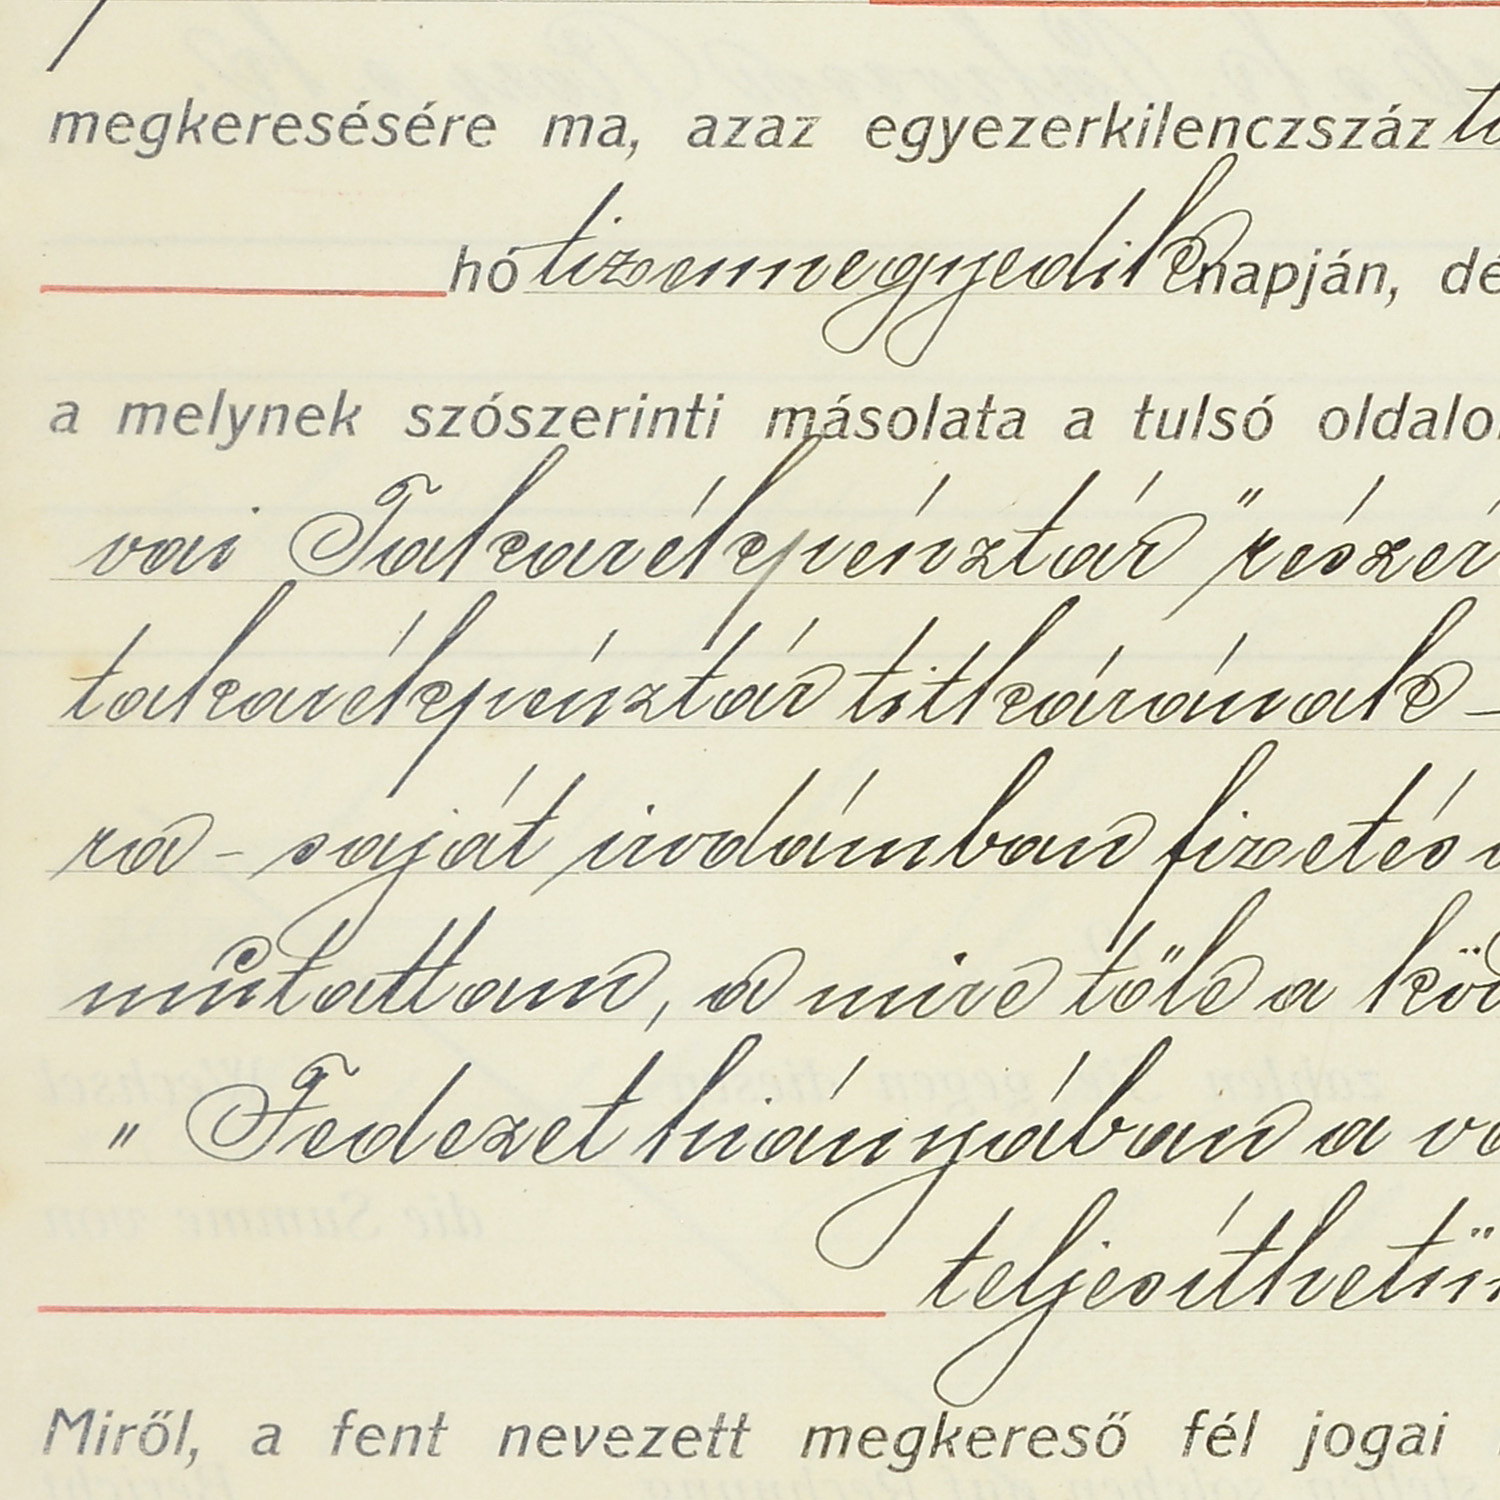 megkeresésére ma, azaz egyezerkilenczszáz
hó tizennegyedik napján, dé
a melynek szószerinti másolata a tulsó oldalo
vai Takarékpénztár" részér
takarékpénztár titkárának –
ra – saját irodámban fizetés
mutattam, a mire tőle a
„Fedezet hiányában a
teljesíthetü
Miről, a fent nevezett megkereső fél jogai